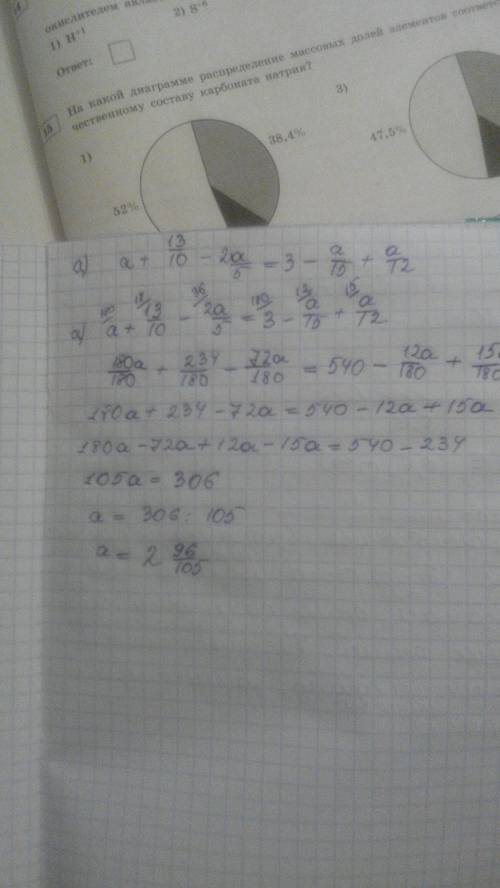 окислителем
1) H⁺¹
2) S⁻⁶
Ответ:
15
На какой диаграмме распределение массовых долей элементов соответ
чественному составу карбоната натрия?
1)
3)
38,4%
47,5%
52%
а) a + 13/10 − 2a/5 = 3 − a/15 + a/12
а) a + 13/10 − 2a/5 = 3 − a/15 + a/12
180a/180 + 234/180 − 72a/180 = 540 − 12a/180 + 15a/180
180a + 234 − 72a = 540 − 12a + 15a
180a − 72a + 12a − 15a = 540 − 234
105a = 306
a = 306 : 105
a = 2 96/105